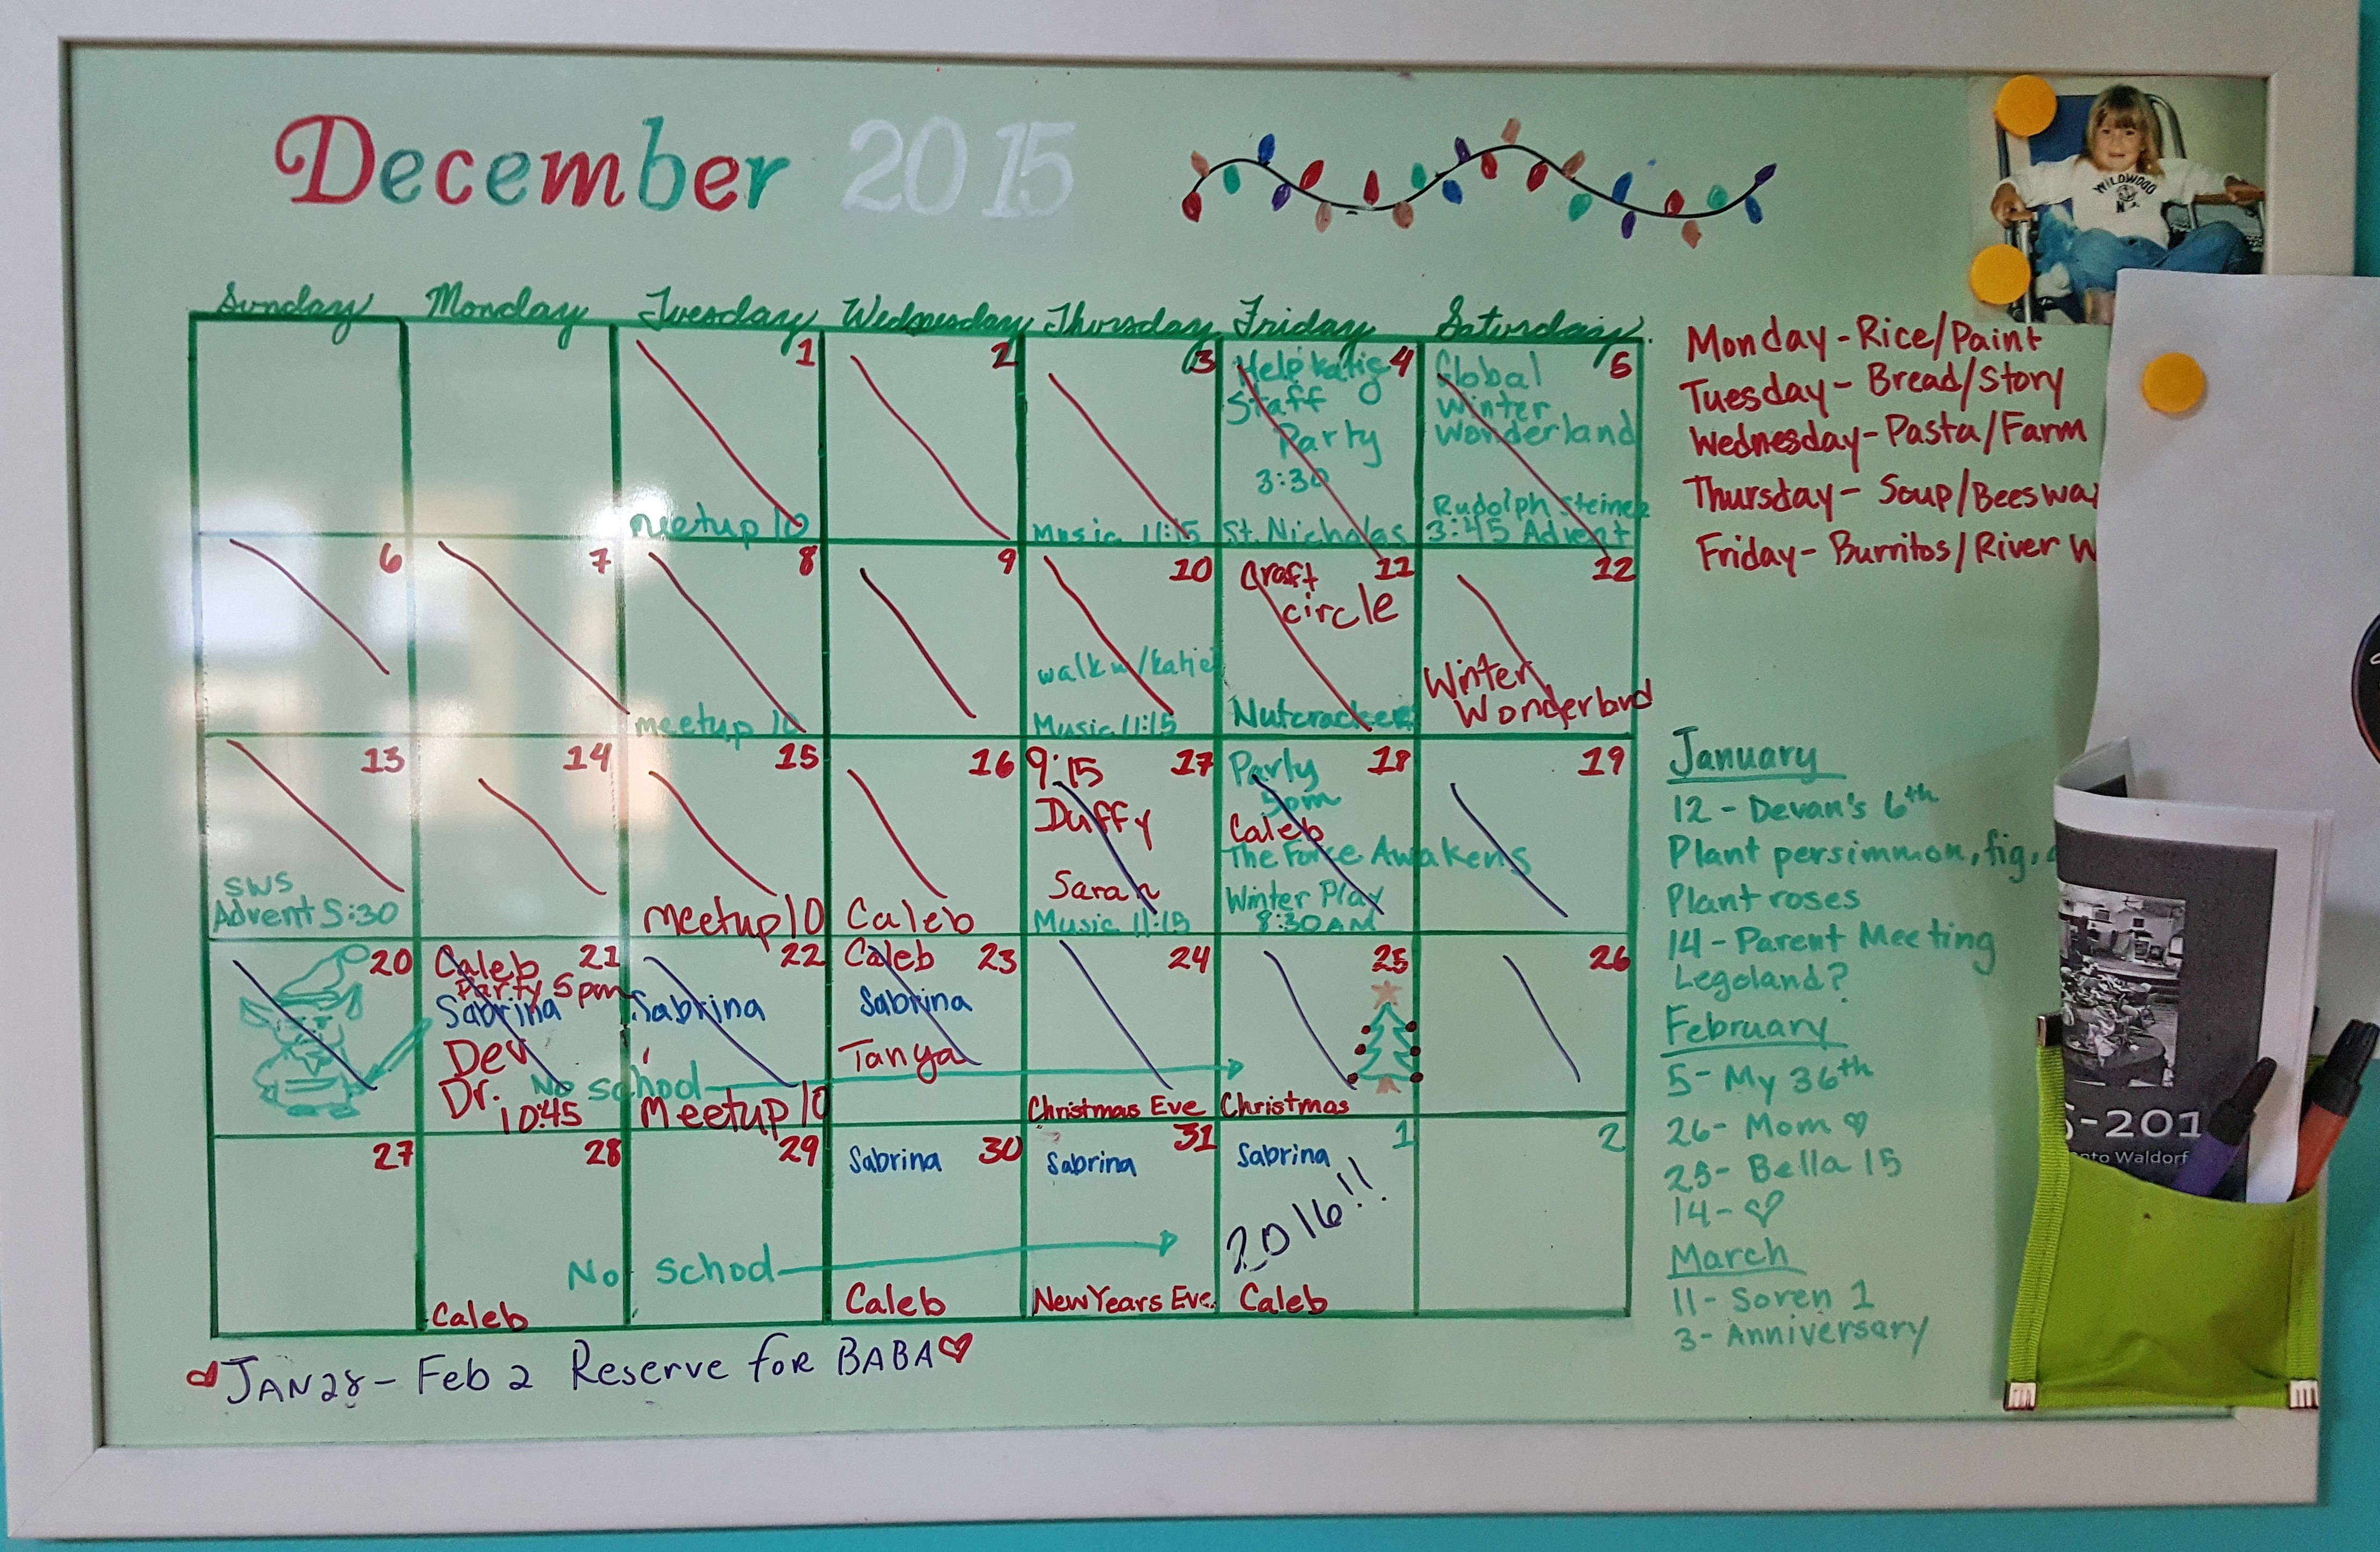 December 2015
WILDWOOD
N.J.
Sunday Monday Tuesday Wednesday Thursday Friday Saturday
1
meetup 10
2
3
Music 11:15
4
Help Katie
Staff
Party
3:30
St. Nicholas
5
Global
Winter
Wonderland
Rudolph Steiner
3:45 Advent
6
7
8
meetup 10
9
10
walk w/Katie
Music 11:15
11
Craft
circle
Nutcracker
12
Winter
Wonderland
13
SWS
Advent 5:30
14
15
meetup 10
16
Caleb
17
9:15
Duffy
Sarah
Music 11:15
18
Party
5pm
Caleb
The Force Awakens
Winter Play
8:30AM
19
20
21
Caleb
Party 5pm
Sabrina
Dev
Dr.
10:45
No school
22
Sabrina
Meetup 10
23
Caleb
Sabrina
Tanya
24
Christmas Eve
25
Christmas
26
27
28
Caleb
No school
29
30
Sabrina
Caleb
31
Sabrina
New Years Eve
1
Sabrina
2016!!
Caleb
2
JAN 28 - Feb 2 Reserve for BABA
Monday - Rice/Paint
Tuesday - Bread/Story
Wednesday - Pasta/Farm
Thursday - Soup/Beeswa
Friday - Burritos/River W
January
12 - Devan's 6th
Plant persimmon, fig,
Plant roses
14 - Parent Meeting
Legoland?
February
5 - My 36th
26 - Mom ♡
25 - Bella 15
14 - ♡
March
11 - Soren 1
3 - Anniversary
-201
nto Waldorf